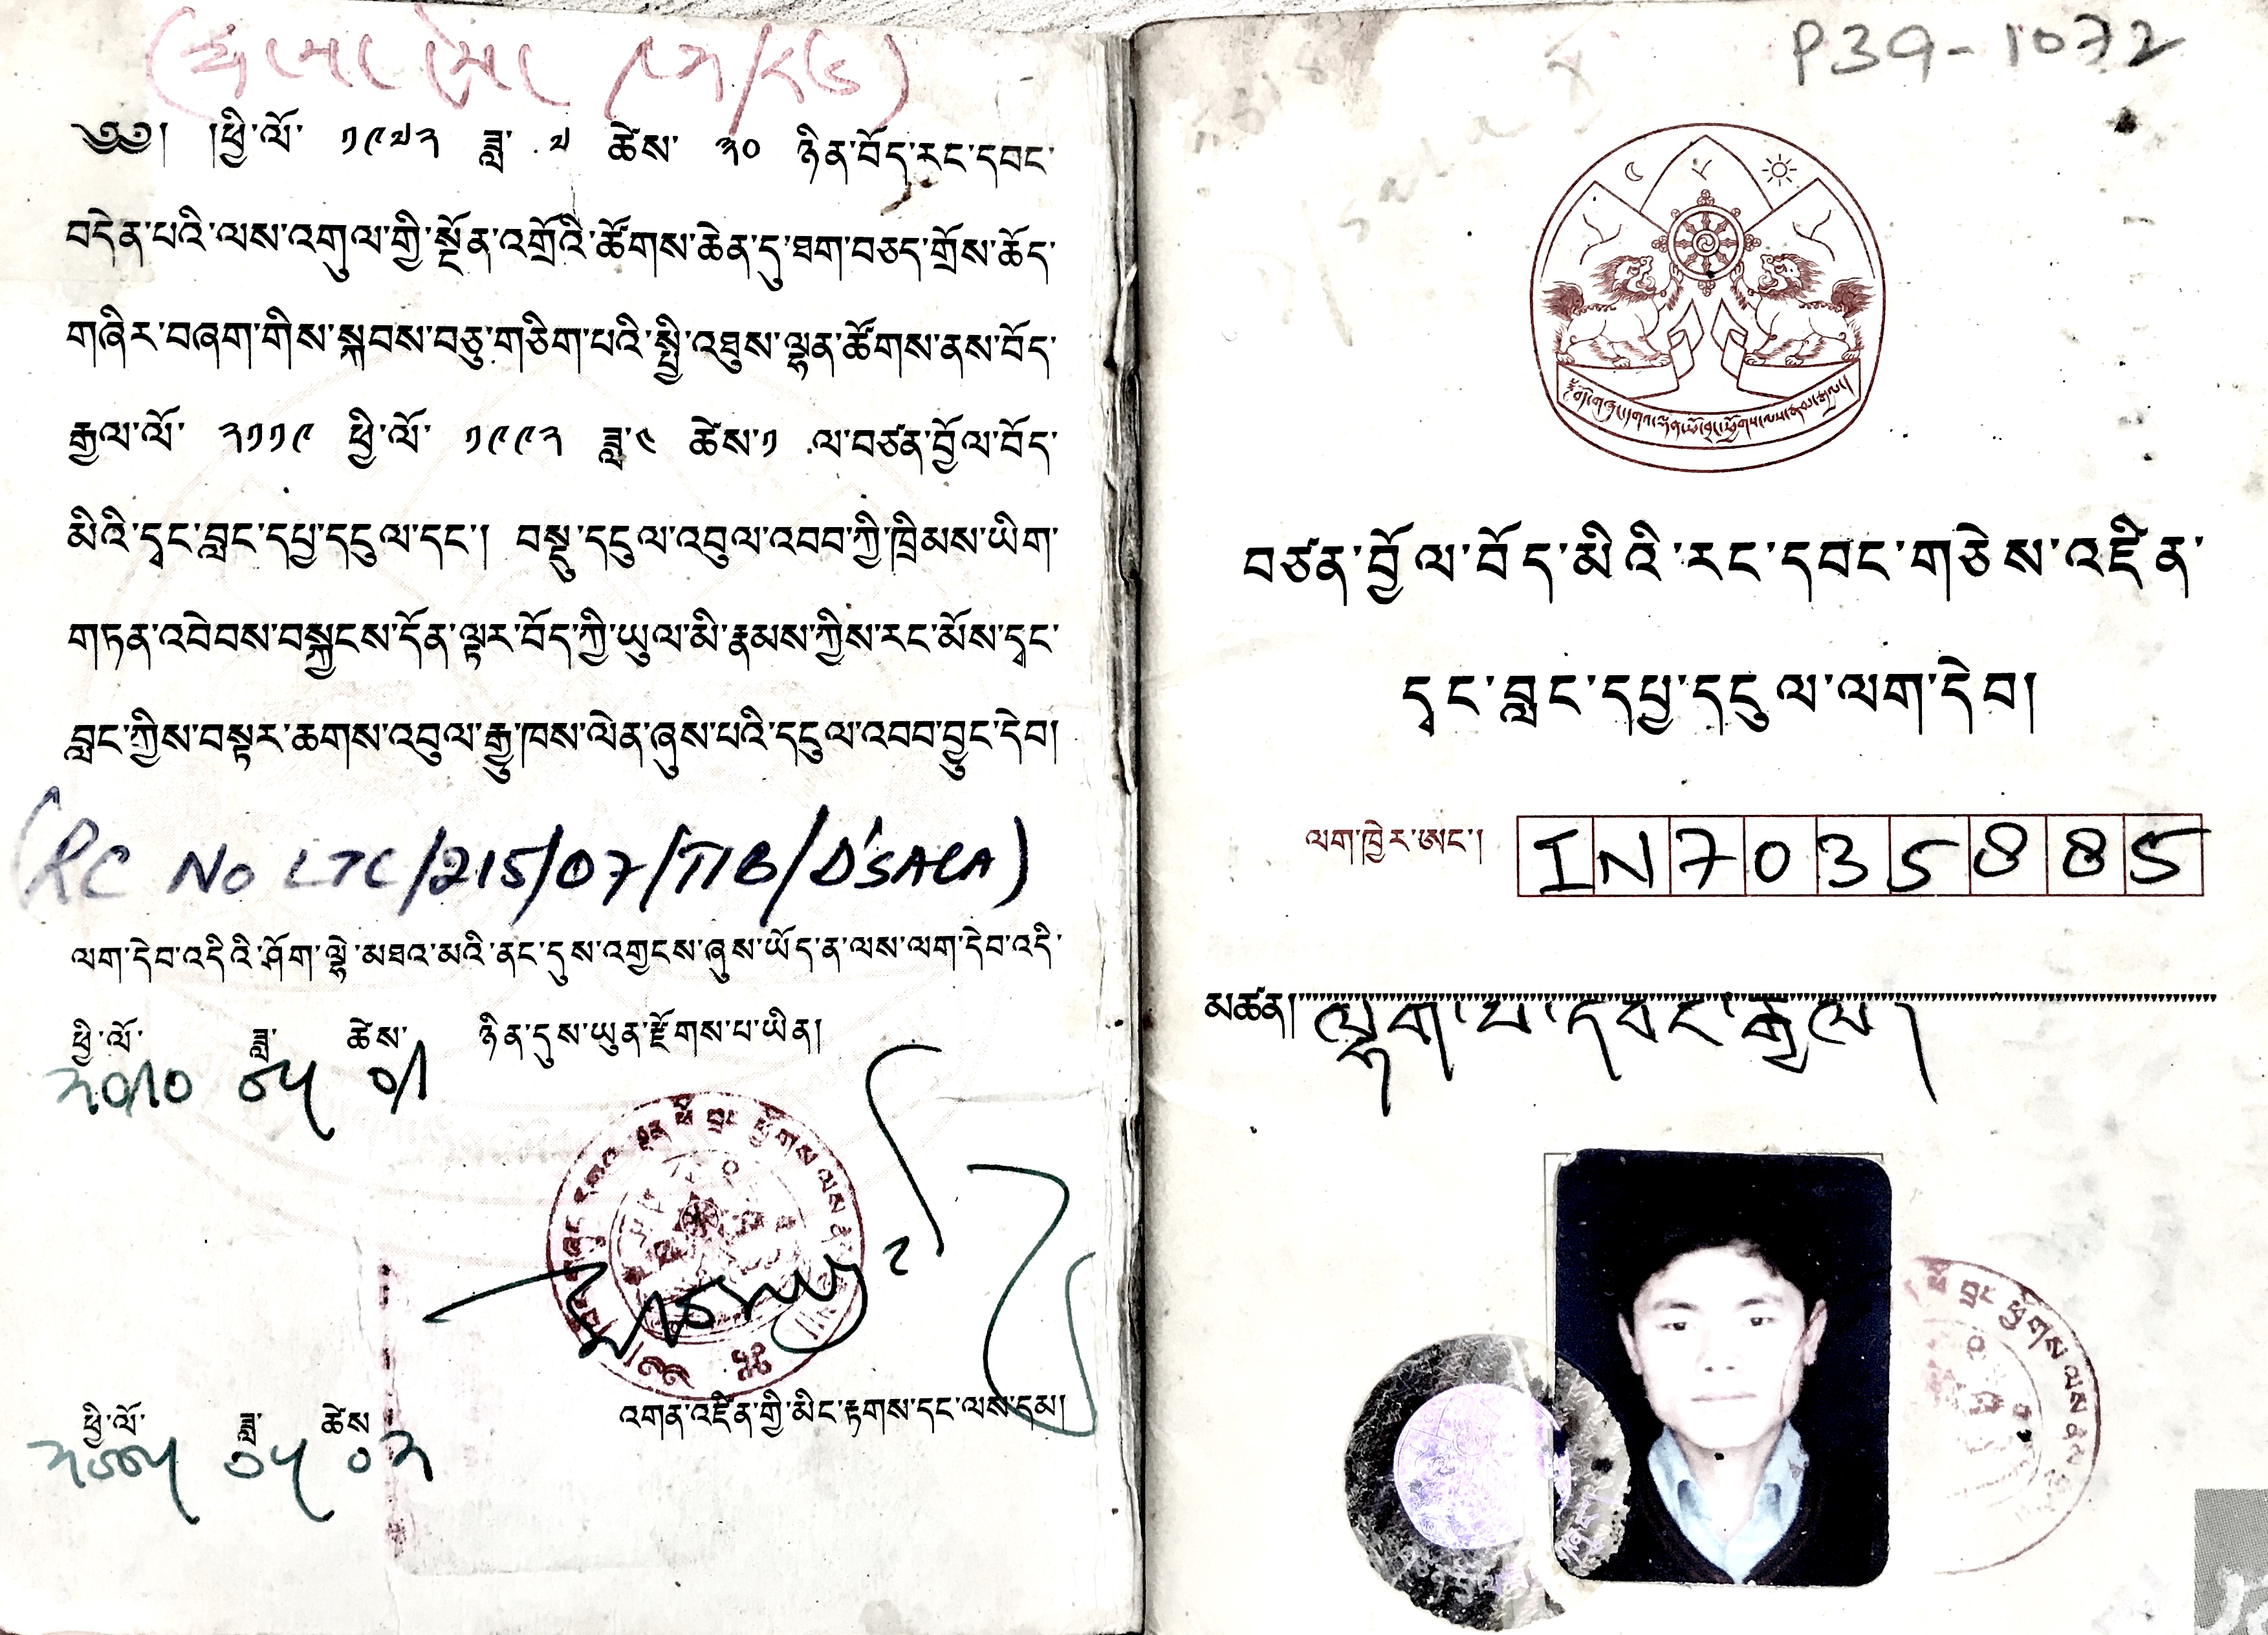 ༄༅། །ཕྱི་ལོ་ ༡༩༧༢ ཟླ་ ༧ ཚེས་ ༣༠ ཉིན་བོད་རང་དབང་
བདེན་པའི་ལས་འགུལ་གྱི་སྔོན་འགྲོའི་ཚོགས་ཆེན་དུ་ཐག་བཅད་གྲོས་ཆོད་
གཞིར་བཞག་གིས་སྐབས་བཅུ་གཅིག་པའི་སྤྱི་འཐུས་ལྷན་ཚོགས་ནས་བོད་
རྒྱལ་ལོ་ ༢༡༡༩ ཕྱི་ལོ་ ༡༩༩༢ ཟླ་༤ ཚེས་༡ ལ་བཙན་བྱོལ་བོད་
མིའི་དྭང་བླང་དཔྱ་དངུལ་དང་། བསྡུ་དངུལ་འབུལ་འབབ་ཀྱི་ཁྲིམས་ཡིག་
གཏན་འབེབས་བསྐྱངས་དོན་ལྟར་བོད་ཀྱི་ཡུལ་མི་རྣམས་ཀྱིས་རང་མོས་དྭང་
བླང་ཀྱིས་བསྟར་ཆགས་འབུལ་རྒྱུ་ཁས་ལེན་ཞུས་པའི་དངུལ་འབབ་བྱུང་དེབ།
(RC No LTC/215/07/TIB/D'SALA)
ལག་དེབ་འདིའི་ཤོག་ལྷེ་མཐའ་མའི་ནང་དུས་འགྱངས་ཞུས་ཡོད་ན་ལས་ལག་དེབ་འདི་
ཕྱི་ལོ་ ཟླ་ ཚེས་ ཉིན་དུས་ཡུན་རྫོགས་པ་ཡིན།
༢༠༡༠ ༠༥ ༠༡
འགན་འཛིན་གྱི་མིང་རྟགས་དང་ལས་དམ།
ཕྱི་ལོ་ ཟླ་ ཚེས
༢༠༠༥ ༠༥ ༠༢
P39-1072
བཙན་བྱོལ་བོད་མིའི་རང་དབང་གཅེས་འཛིན་
དྭང་བླང་དཔྱ་དངུལ་ལག་དེབ།
ལག་ཁྱེར་ཨང་། IN7035885
མཚན། ལྷག་པ་དབང་རྒྱལ།